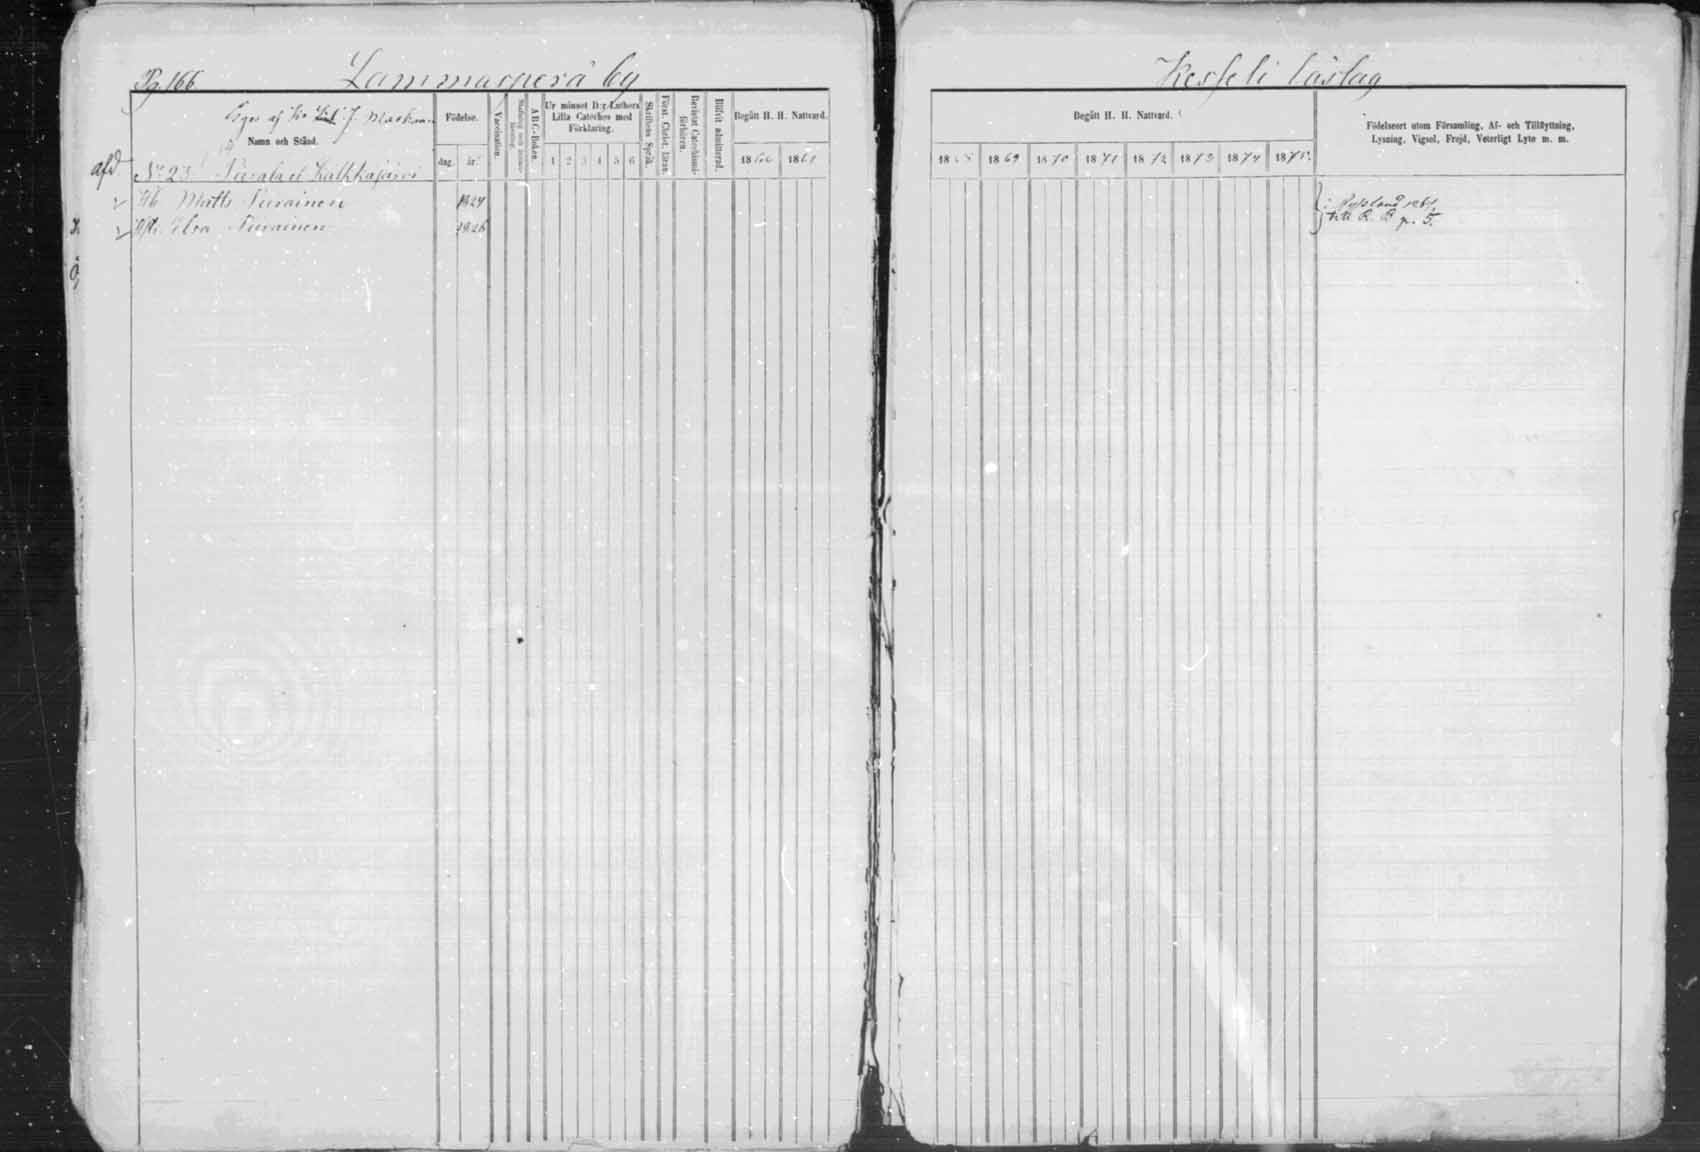 Pg 166. Lammasperä by
Äges af
Namn och Stånd.
Födelse.
dag. år.
Vaccination.
A B C-Boken.
Ur minnet D:r Luthers
Lilla Cateches med
Förklaring.
1 2 3 4 5 6
Skriftens Språk.
Först. Christ. läran.
Bevistat Catechismi-
förhören.
Blifvit admitterad.
Begått H. H. Nattvard.
1866 1867
afd.
No 23
Matts Piirainen 1824
Elsa Piirainen 1826
Kesseli läslag
Begått H. H. Nattvard.
1868 1869 1870 1871 1872 1873 1874 1875
Födelseort utom Församling, Af- och Tillflyttning,
Lysning, Vigsel, Frejd, Veterligt Lyte m. m.
i Ryssland
till R. B p. 5.